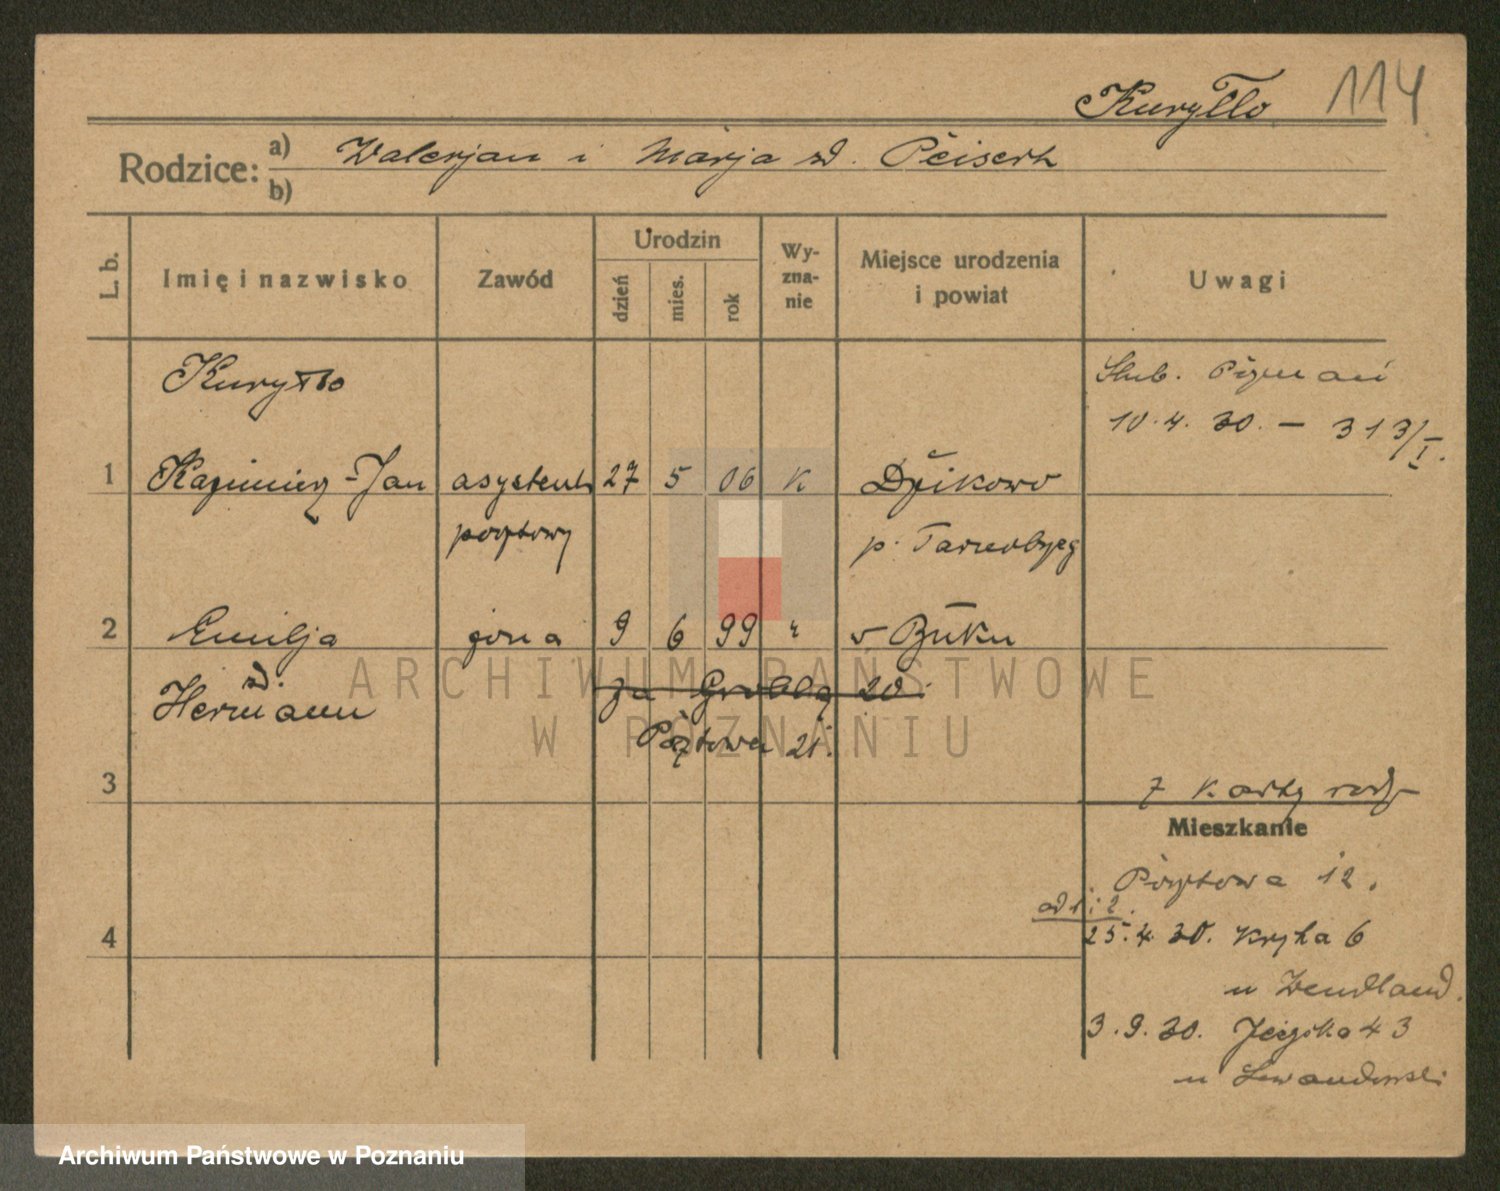 Kuryłło 114
Rodzice: a) Walerjan i Marja zd. Peisert
b)
L. b. Imię i nazwisko Zawód Urodzin dzień mies. rok Wy-zna-nie Miejsce urodzenia i powiat Uwagi
Kuryłło
Ślub. Poznań
10.4.30. – 313/I.
1 Kazimierz-Jan asystent 27 5 06 k Dzików
pocztowy p. Tarnobrzeg
2 Emilja żona 9 6 99 " w Buku
zd. Hermann
za Groblą 20.
Pocztowa 25.
3
z karty rodz
Mieszkanie
Pocztowa 12.
ad 1 i 2.
4
25.4.30. Kręta 6
u Wendland.
3.9.30. 43
u Lewandowski
ARCHIWUM PAŃSTWOWE
W POZNANIU
Archiwum Państwowe w Poznaniu